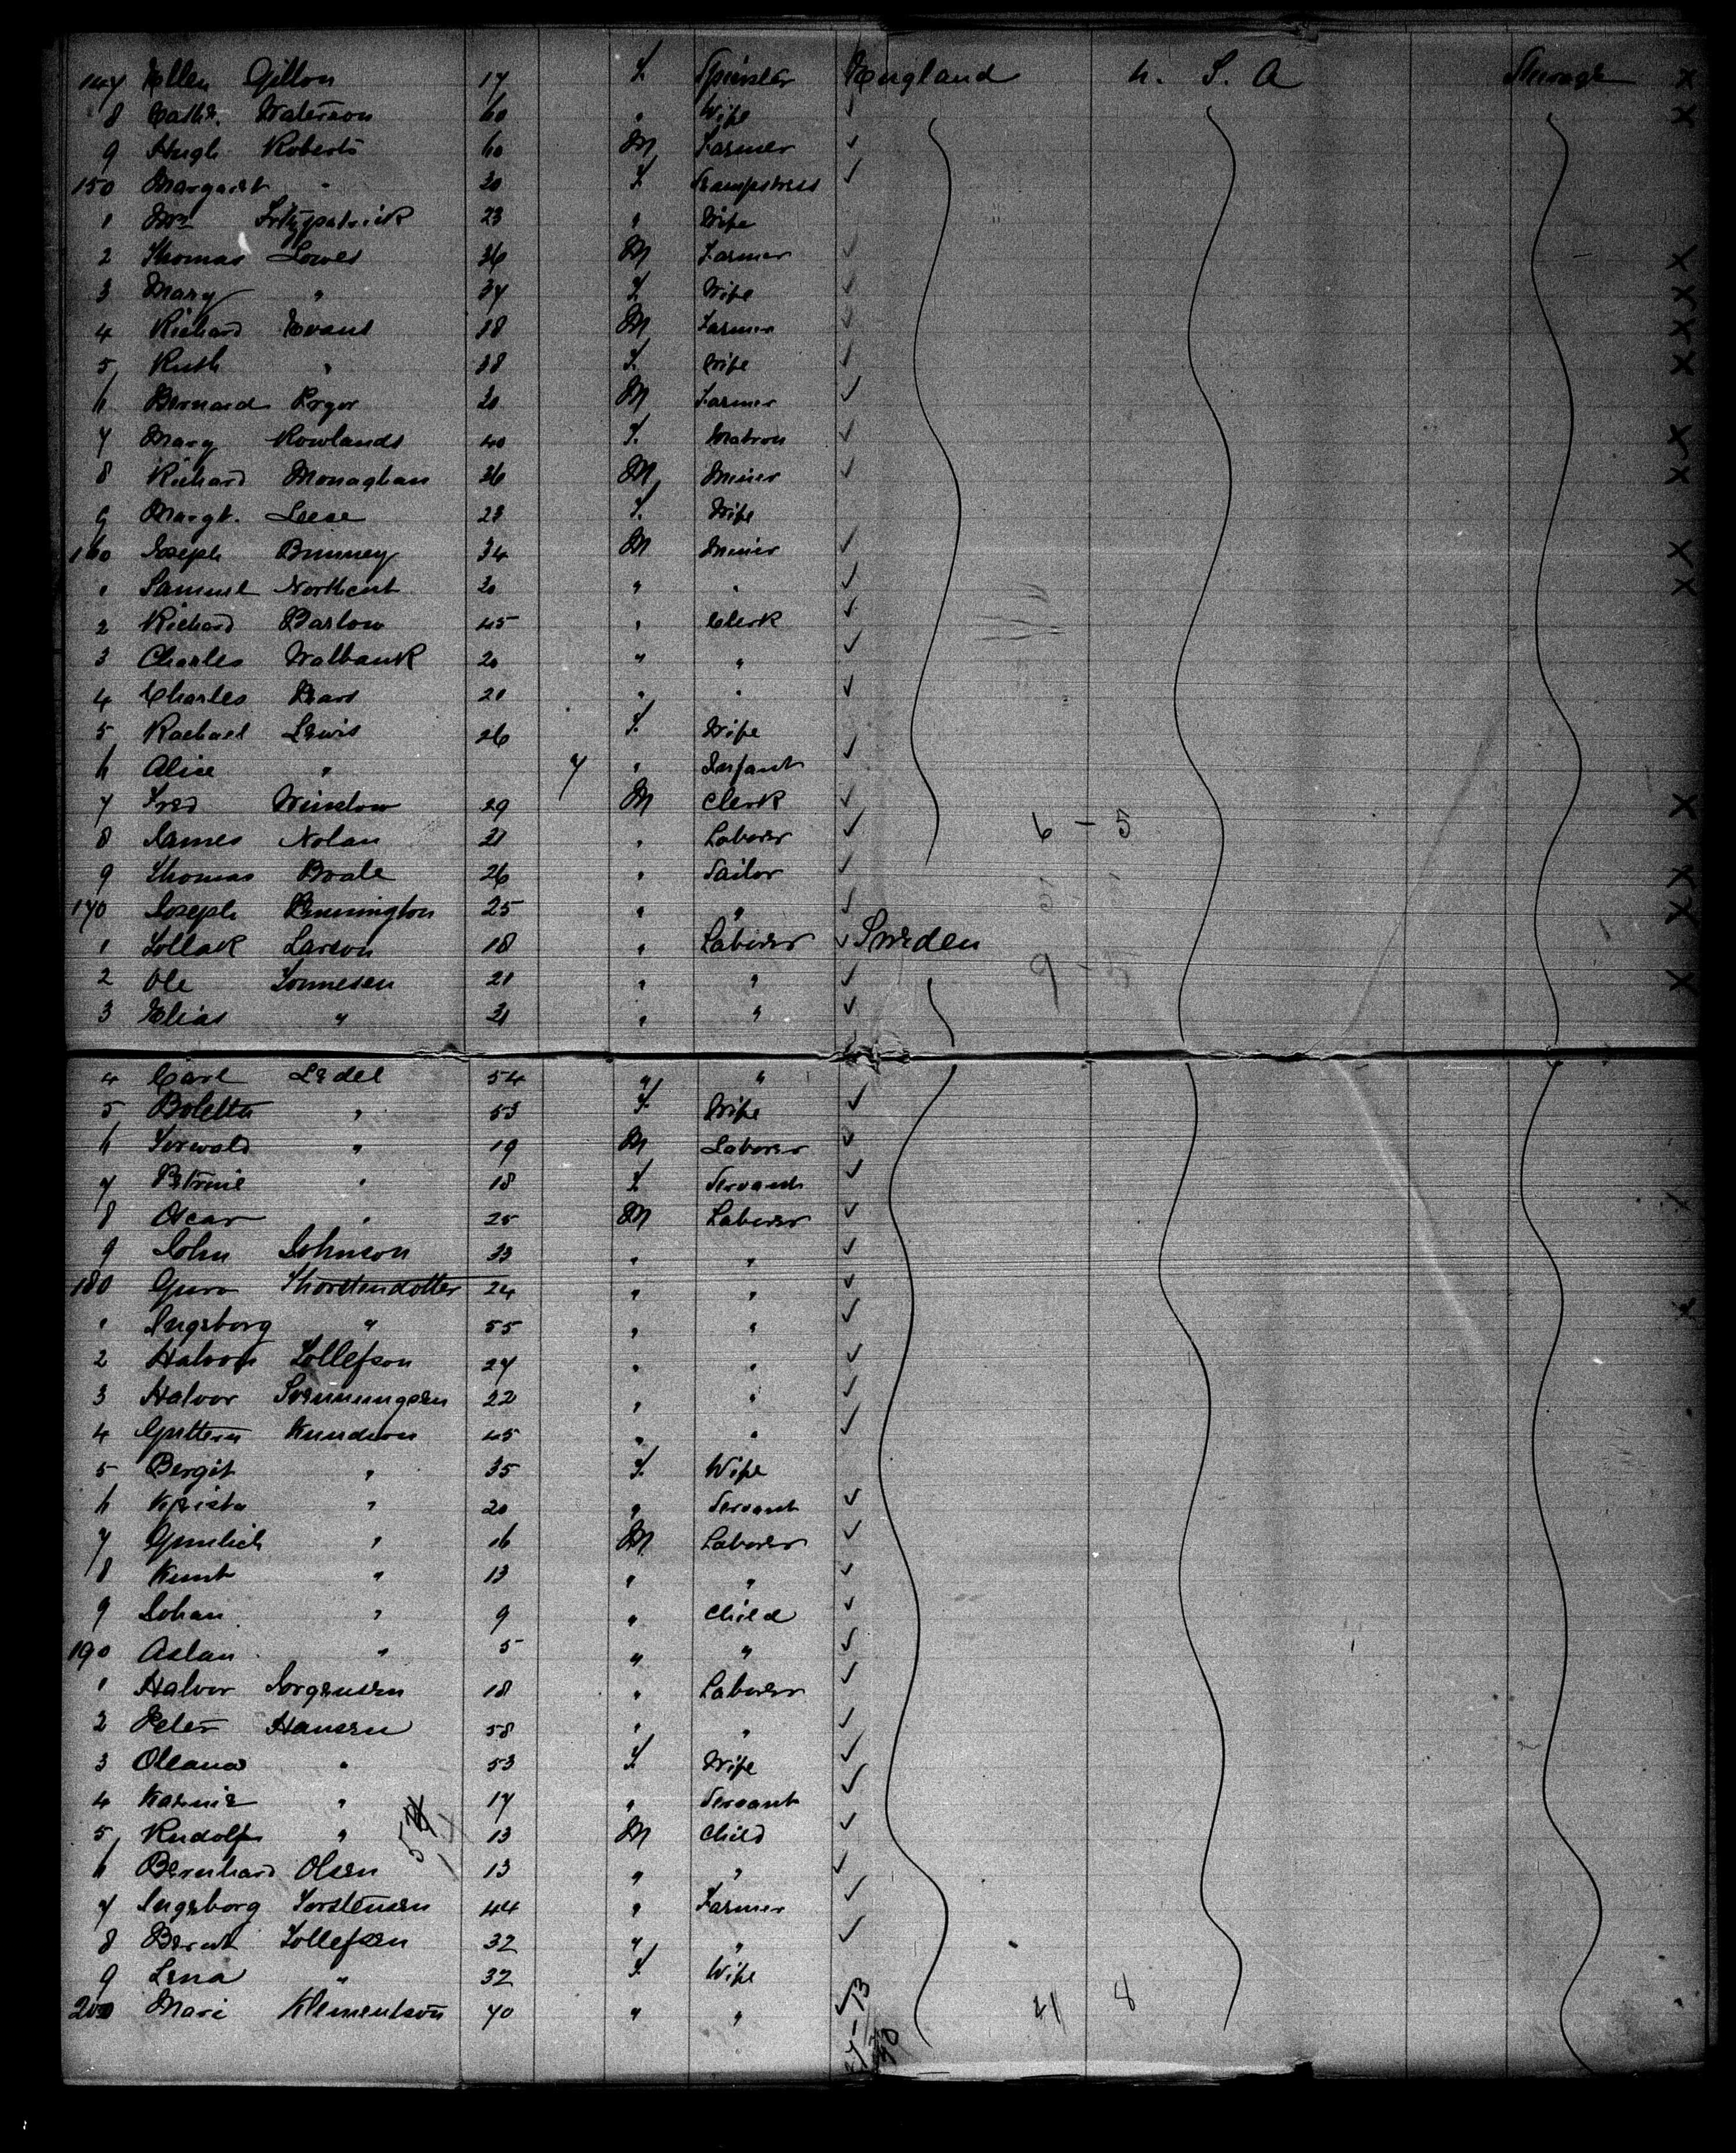 147 Ellen Gillon 17 F. Spinster England U. S. A Steerage X
8 Cathe. Waterson 60 " Wife X
9 Hugh Roberts 60 M Farmer ✓
150 Margaret " 20 F. Seampstress ✓
1 Mrs Fitzpatrick 23 " Wife
2 Thomas Lowes 36 M Farmer ✓ X
3 Mary " 34 F. Wife ✓ X
4 Richard Evans 28 M Farmer ✓ X
5 Ruth " 28 F. Wife ✓ X
6 Bernard Pryor 20 M Farmer ✓
7 Mary Rowlands 40 F. Matron ✓ X
8 Richard Monaghan 36 M Miner ✓ X
9 Margt. Leese 23 F. Wife
160 Joseph Binney 34 M Miner ✓ X
1 Samuel Northcut 20 " " ✓ X
2 Richard Barlow 45 " Clerk ✓
3 Charles Walbank 20 " " ✓
4 Charles 20 " " ✓
5 Rachael Lewis 26 F. Wife
6 Alice " 7 " Infant ✓
7 Fred Winslow 29 M Clerk ✓ X
8 James Nolan 21 " Laborer ✓ 6 - 5
9 Thomas Boale 26 " Tailor ✓ X
170 Joseph Bennington 25 " " ✓ X
1 Tollak Larson 18 " Laborer ✓ Sweden
2 Ole Tonnesen 21 " " ✓ 9 - 5 X
3 Elias " 21 " " ✓
4 Carl Ledel 54 " "
5 Bolette " 53 F. Wife ✓
6 Torwald " 19 M Laborer ✓
7 Petrine " 18 F. Servant ✓
8 Oscar " 25 M Laborer ✓
9 John Johnson 33 " " ✓
180 Guro Thorstendotter 24 " " ✓
1 Ingeborg " 55 " " ✓ X
2 Halvor Tollefson 27 " " ✓
3 Halvor Svennungsen 22 " " ✓
4 Guttern Knudson 45 " " ✓
5 Bergit " 35 F. Wife
6 Krista " 20 " Servant ✓
7 Gunlich " 16 M Laborer ✓
8 Knut " 13 " " ✓
9 Johan " 9 " Child ✓
190 Aslan " 5 " " ✓
1 Halvor Jorgensen 18 " Laborer ✓
2 Peter Hansen 58 " " ✓
3 Oleana " 53 F. Wife ✓
4 " 17 " Servant ✓
5 Rudolf " 13 M Child ✓
6 Bernhard Olsen 13 " " ✓
7 Ingeborg Torstensen 44 " Farmer ✓
8 Bernt Tollefsen 32 " " ✓
9 Lena " 32 F. Wife
200 Mari Klementson 70 " " ✓ 21 8